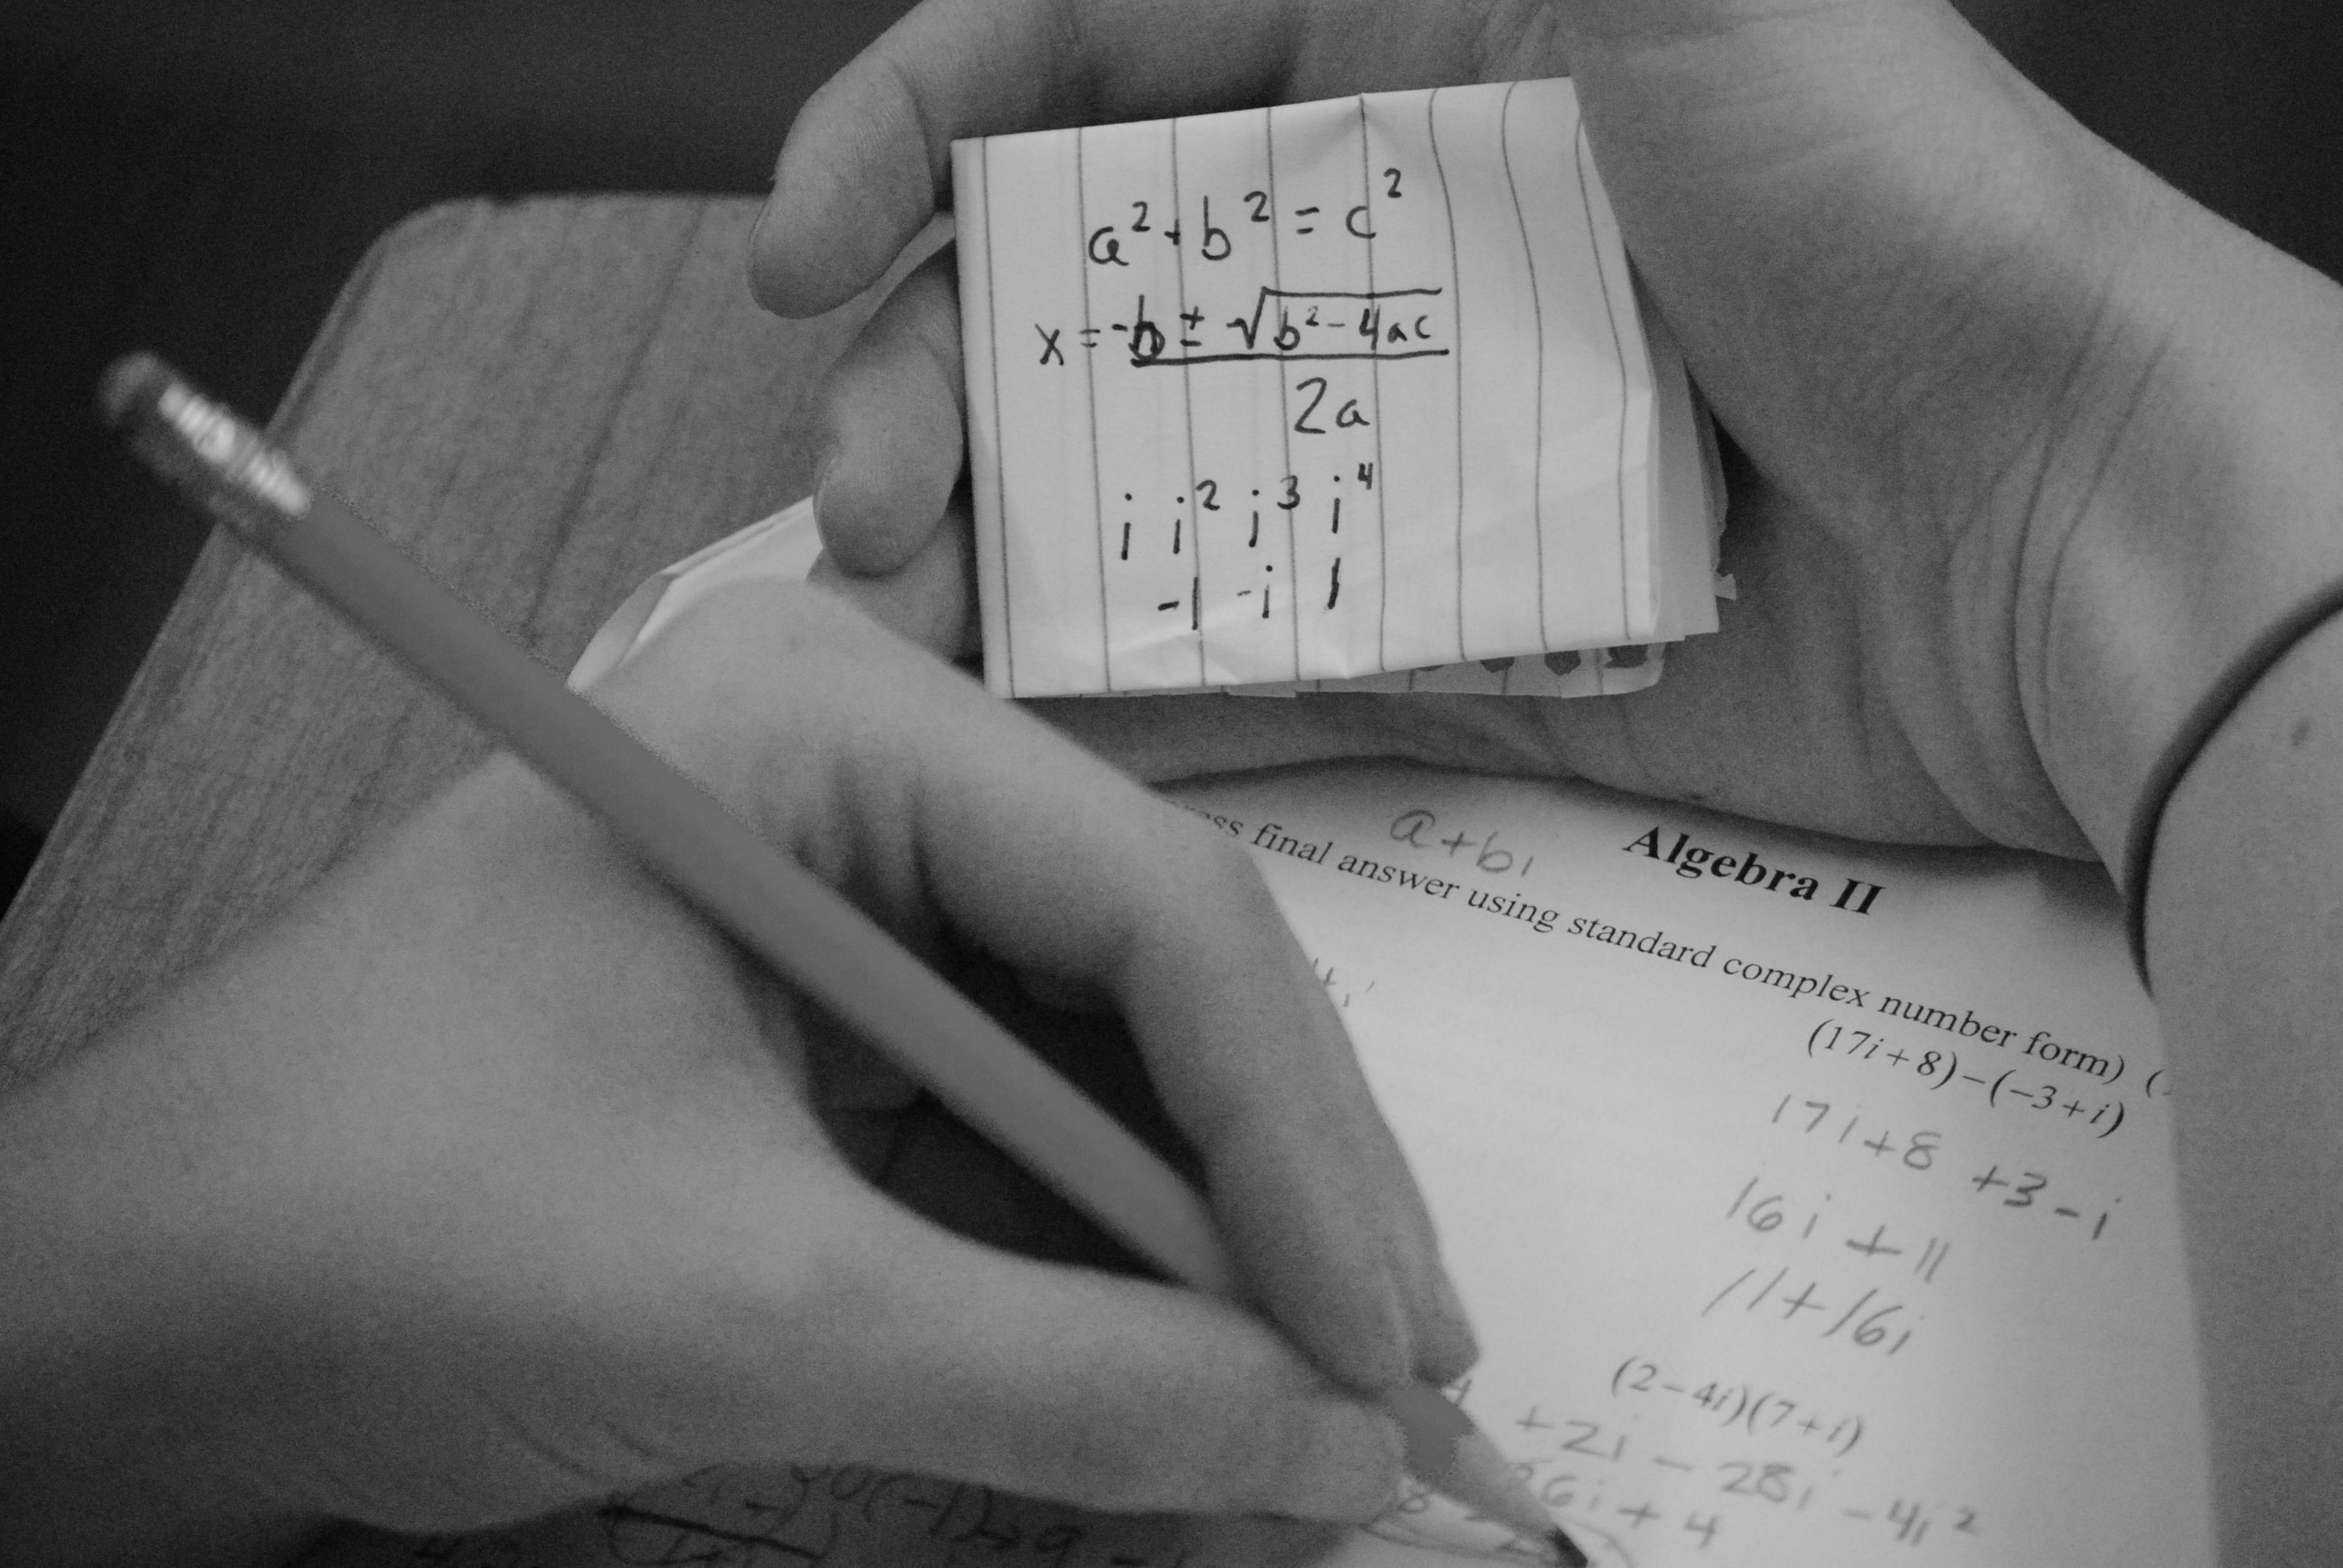 a² + b² = c²
x = -b ± √b² - 4ac
2a
i i² i³ i⁴
-1 -i 1
a+bi
Algebra II
final answer using standard complex number form) (
(17i + 8) – (–3 + i)
17i+8 +3-i
16i + 11
11+16i
(2 – 4i)(7 + i)
+2i - 28i - 4i²
6i + 4